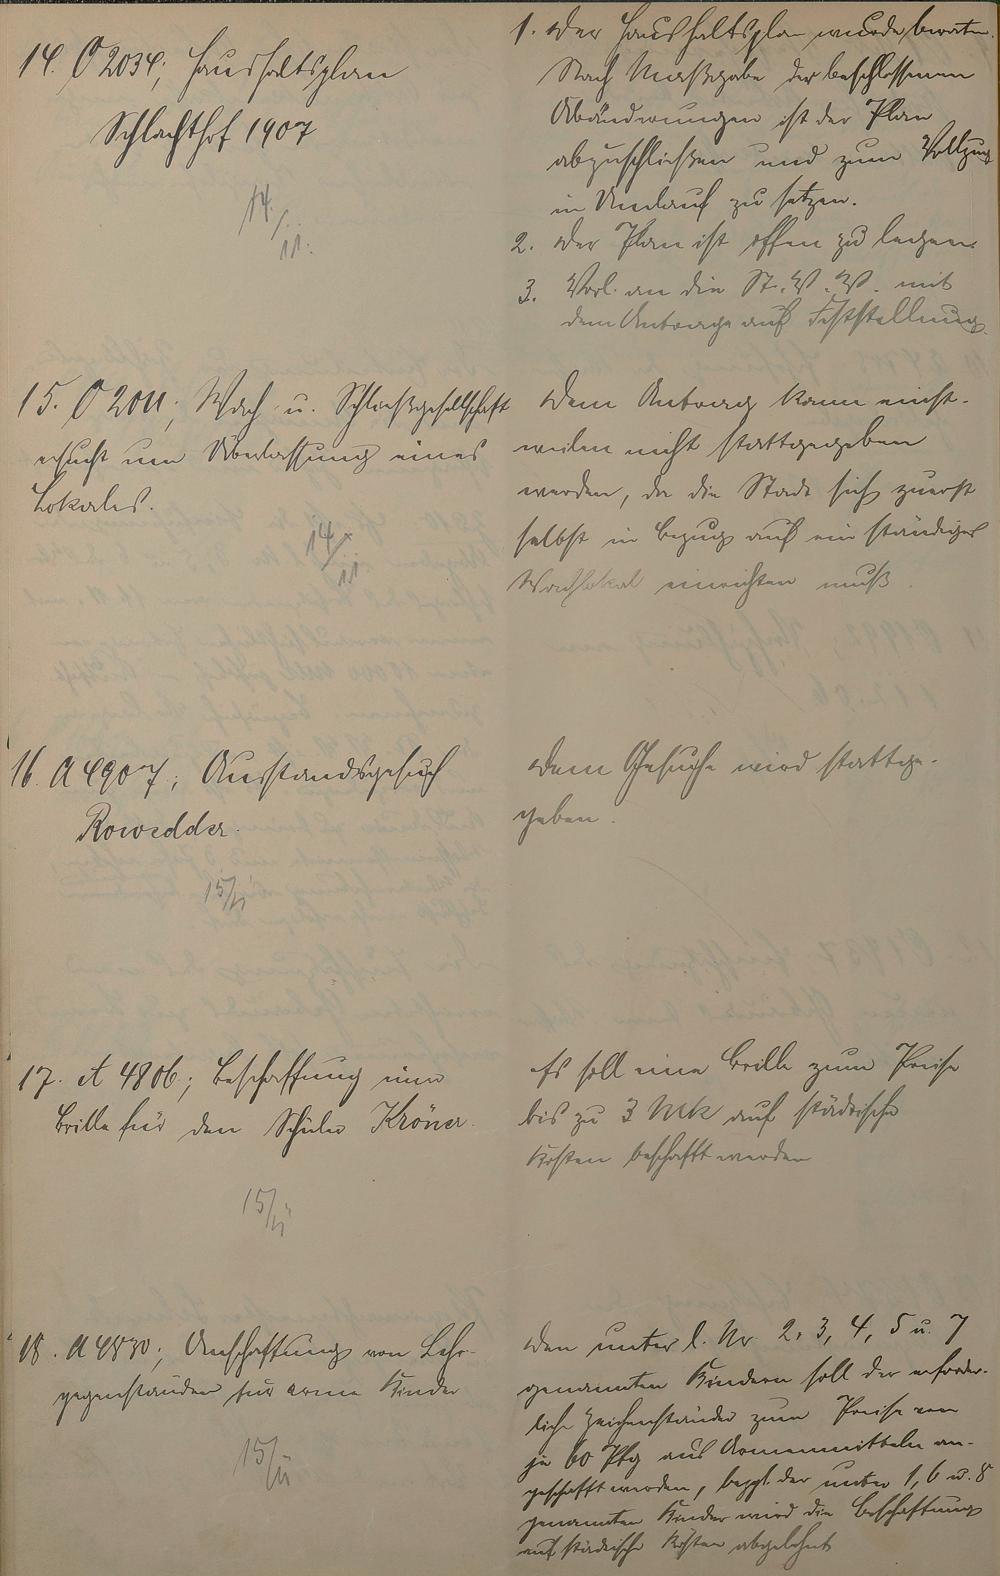 14. O 2034; Haushaltsplan
Schlachthof 1907
14./11.
1. Der Haushaltsplan wurde beraten.
Nach Maßgabe der beschlossenen
Abänderungen ist der Plan
abzuschließen und zum Vollzug
in Umlauf zu setzen.
2. Der Plan ist offen zu legen.
3. Vorl. an die St. V. V. mit
dem Antrage auf Feststellung.
15. O 2011; Wach- u. Schließgesellschaft
ersucht um Überlassung eines
Lokales.
14/11
Dem Antrag kann einst-
weilen nicht stattgegeben
werden, da die Stadt sich zuerst
selbst in Bezug auf ein ständiges
Wachlokal einrichten muß.
16. A 4907; Ausstandsgesuch
Rowedder.
15/11
Dem Gesuche wird stattge-
geben.
17. A 4806; Beschaffung einer
Brille für den Schüler Kröner.
15/11
Es soll eine Brille zum Preise
bis zu 3 Mk auf städtische
Kosten beschafft werden
18. A 4830; Anschaffung von Lehr-
gegenständen für arme Kinder
15/11
Den unter l. Nr. 2, 3, 4, 5 u. 7
genannten Kindern soll der erforder-
liche Zeichenständer zum Preise von
je 60 Pfg aus Armenmitteln an-
geschafft werden, bezgl. der unter 1, 6 u. 8
genannten Kinder wird die Beschaffung
auf städtische Kosten abgelehnt